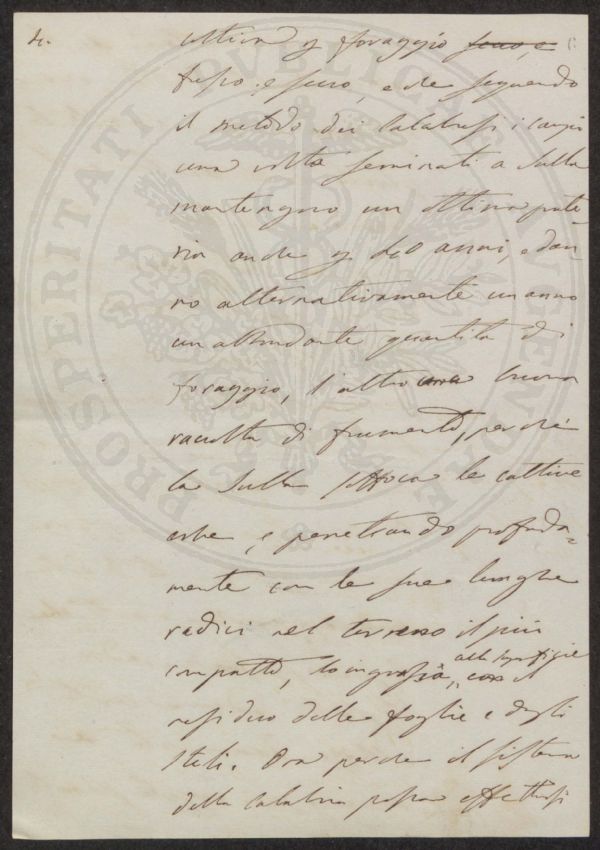 ottima p foraggio
fresco, e secco, e che seguendo
il metodo dei Calabresi i campi
una volta seminati a Sulla
mantengono un ottima prate-
ria anche p 40 anni, e dan-
no alternativamente un anno
un abbondante quantità di
foraggio, l'altro buona
raccolta di frumento, perché
la Sulla soffoca le cattive
erbe, e penetrando profonda-
mente con le sue lunghe
radici nel terreno il più
compatto, lo ingrassa, alla superficie il
residuo delle foglie e degli
steli. Ora perche il sistema
della Calabria possa effettuarsi
PROSPERITATI PUBLICAE AUGENDAE